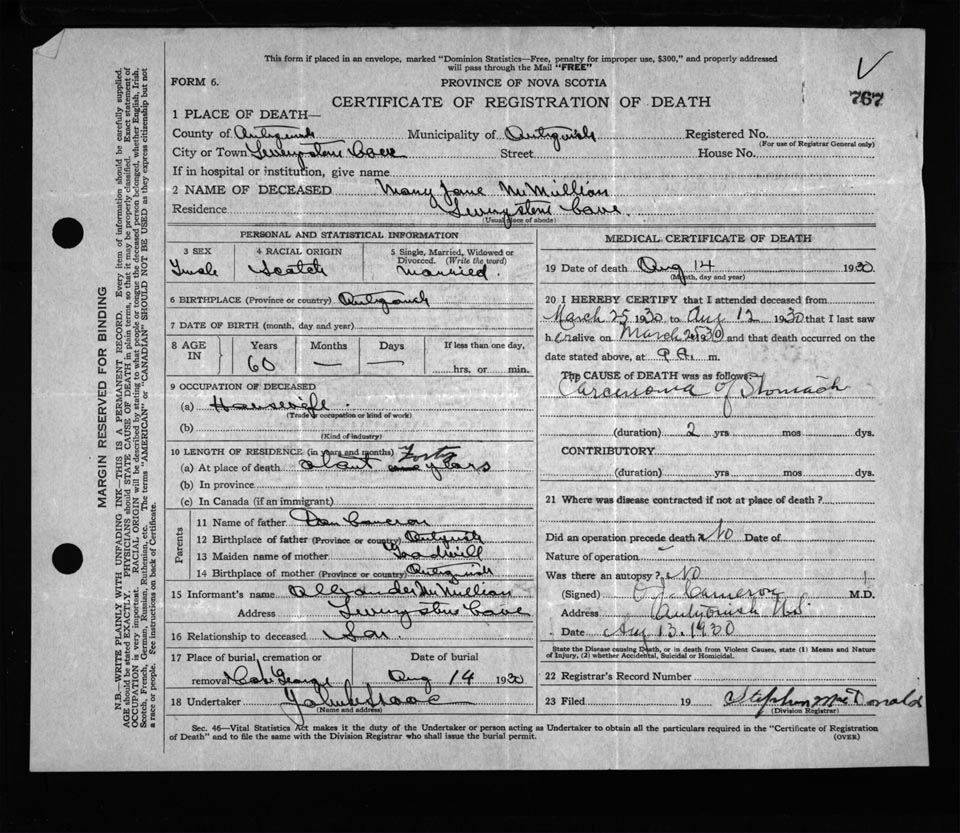 This form if placed in an envelope, marked "Dominion Statistics—Free, penalty for improper use, $300," and properly addressed
will pass through the Mail "FREE"
FORM 6.
PROVINCE OF NOVA SCOTIA
767
CERTIFICATE OF REGISTRATION OF DEATH
MARGIN RESERVED FOR BINDING
N.B.—WRITE PLAINLY WITH UNFADING INK—THIS IS A PERMANENT RECORD. Every item of information should be carefully supplied.
AGE should be stated EXACTLY. PHYSICIANS should STATE CAUSE OF DEATH in plain terms, so that it may be properly classified. Exact statement of
OCCUPATION is very important. RACIAL ORIGIN will be described by stating to what people or tongue the deceased person belonged, whether English, Irish,
Scotch, French, German, Russian, Ruthenian, etc. The terms "AMERICAN" or "CANADIAN" SHOULD NOT BE USED as they express citizenship but not
a race or people. See instructions on back of Certificate.
1 PLACE OF DEATH—
County of Antigonish Municipality of Antigonish Registered No.
(For use of Registrar General only)
City or Town Livingstons Cove Street House No.
If in hospital or institution, give name
2 NAME OF DECEASED Mary Jane McMillian
Residence Livingstons Cove.
(Usual place of abode)
PERSONAL AND STATISTICAL INFORMATION
3 SEX 4 RACIAL ORIGIN 5 Single, Married, Widowed or
Divorced. (Write the word)
Scotch Married.
6 BIRTHPLACE (Province or country) Antigonish
7 DATE OF BIRTH (month, day and year)
8 AGE IN Years Months Days If less than one day,
60 — — hrs. or min.
9 OCCUPATION OF DECEASED
(a) Housewife.
(Trade, occupation or kind of work)
(b)
(Kind of industry)
10 LENGTH OF RESIDENCE (in years and months)
(a) At place of death about Forty years
(b) In province
(c) In Canada (if an immigrant)
Parents
11 Name of father Dan Cameron
12 Birthplace of father (Province or country) Antigonish
13 Maiden name of mother
14 Birthplace of mother (Province or country) Antigonish
15 Informant's name Alexander McMillian
Address Livingstons Cove
16 Relationship to deceased Son.
17 Place of burial, cremation or Date of burial
removal Cape George Aug 14 1930
18 Undertaker
(Name and address)
MEDICAL CERTIFICATE OF DEATH
19 Date of death Aug 14 1930
(Month, day and year)
20 I HEREBY CERTIFY that I attended deceased from
March 25 1930 to Aug 12 1930 that I last saw
her alive on March 25 1930 and that death occurred on the
date stated above, at 9 A. m.
The CAUSE OF DEATH was as follows:
Carcinoma of Stomach
(duration) 2 yrs mos dys.
CONTRIBUTORY
(duration) yrs mos dys.
21 Where was disease contracted if not at place of death?
Did an operation precede death? No Date of
Nature of operation
Was there an autopsy? No
(Signed) O.J. Cameron M.D.
Address Antigonish N.S.
Date Aug 13. 1930
State the Disease causing Death, or in death from Violent Causes, state (1) Means and Nature
of Injury, (2) whether Accidental, Suicidal or Homicidal.
22 Registrar's Record Number
23 Filed 19 Stephen MacDonald
(Division Registrar)
Sec. 46—Vital Statistics Act makes it the duty of the Undertaker or person acting as Undertaker to obtain all the particulars required in the "Certificate of Registration
of Death" and to file the same with the Division Registrar who shall issue the burial permit.
(OVER)